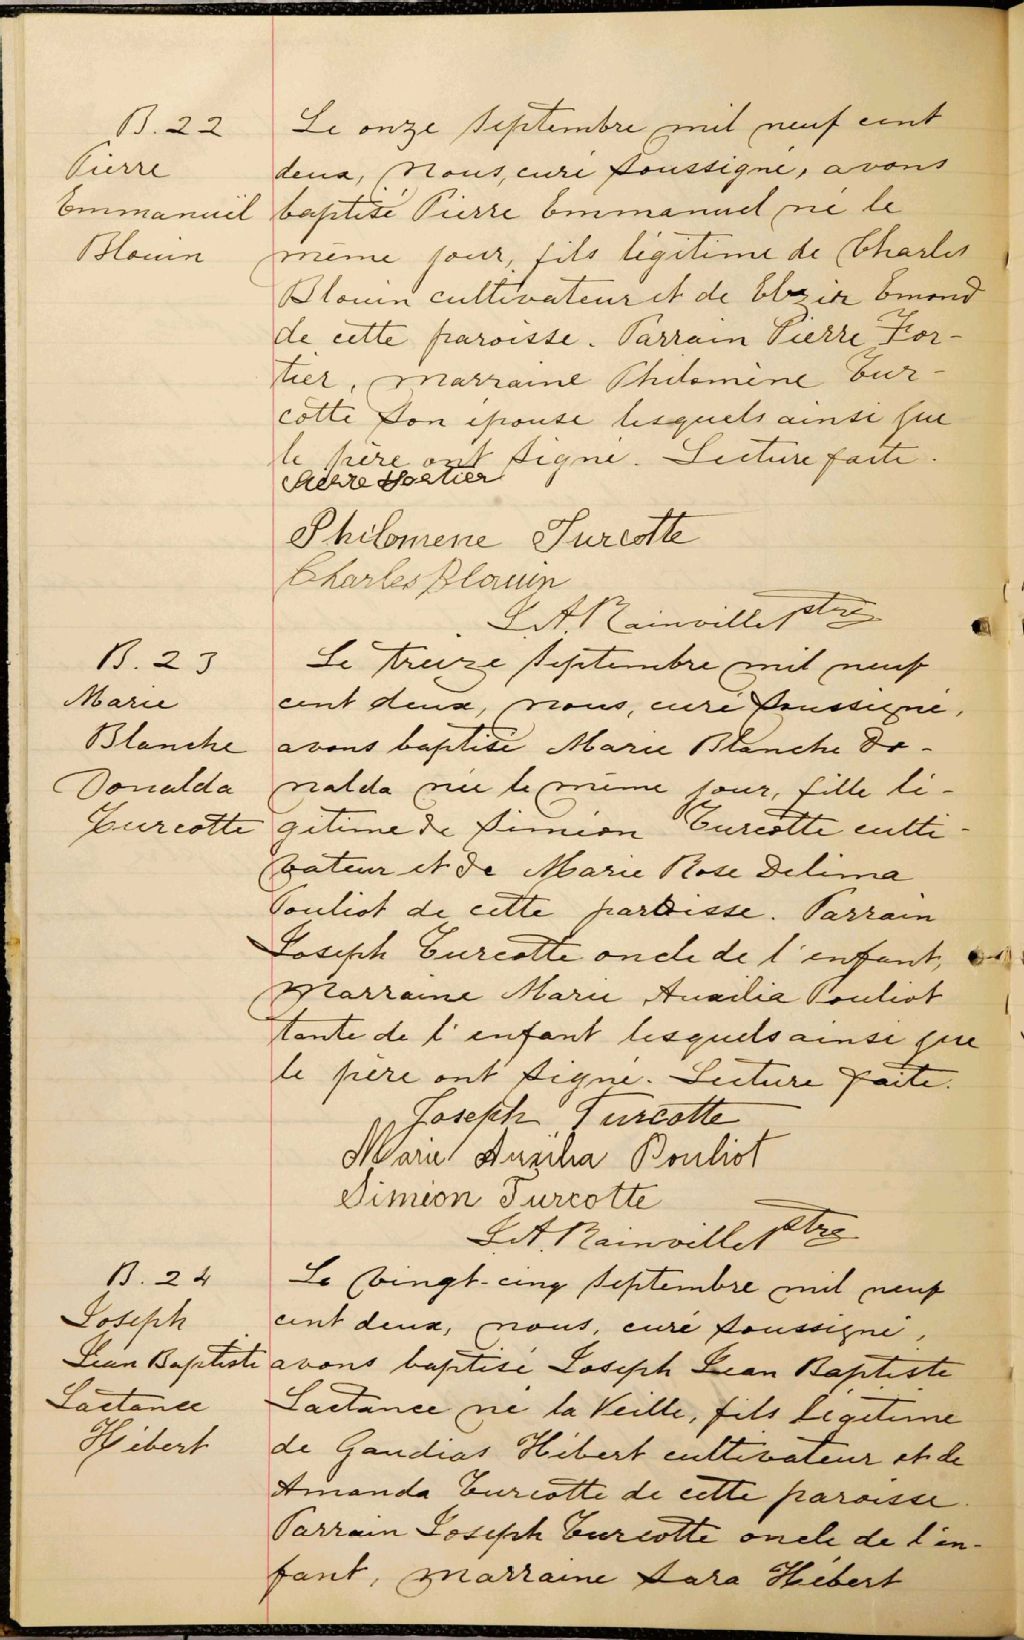 B. 22
Pierre
Emmanuël
Blouin
Le onze septembre mil neuf cent
deux, nous, curé soussigné, avons
baptisé Pierre Emmanuel né le
même jour, fils légitime de Charles
Blouin cultivateur et de Elzir Emond
de cette paroisse. Parrain Pierre For-
tier, marraine Philomène Tur-
cotte son épouse lesquels ainsi que
le père ont signé. Lecture faite.
Pierre Fortier
Philomene Turcotte
Charles Blouin
L. A. Rainville Ptre
B. 23
Marie
Blanche
Donalda
Turcotte
Le treize septembre mil neuf
cent deux, nous, curé soussigné,
avons baptisé Marie Blanche Do-
nalda née le même jour, fille lé-
gitime de Siméon Turcotte culti-
vateur et de Marie Rose Delima
Pouliot de cette paroisse. Parrain
Joseph Turcotte oncle de l'enfant,
marraine Marie Auxilia Pouliot
tante de l'enfant lesquels ainsi que
le père ont signé. Lecture faite.
Joseph Turcotte
Marie Auxilia Pouliot
Siméon Turcotte
L. A. Rainville Ptre
B. 24
Joseph
Jean Baptiste
Lactance
Hébert
Le vingt-cinq septembre mil neuf
cent deux, nous, curé soussigné,
avons baptisé Joseph Jean Baptiste
Lactance né la veille, fils légitime
de Gaudias Hébert cultivateur et de
Amanda Turcotte de cette paroisse.
Parrain Joseph Turcotte oncle de l'en-
fant, marraine Sara Hébert